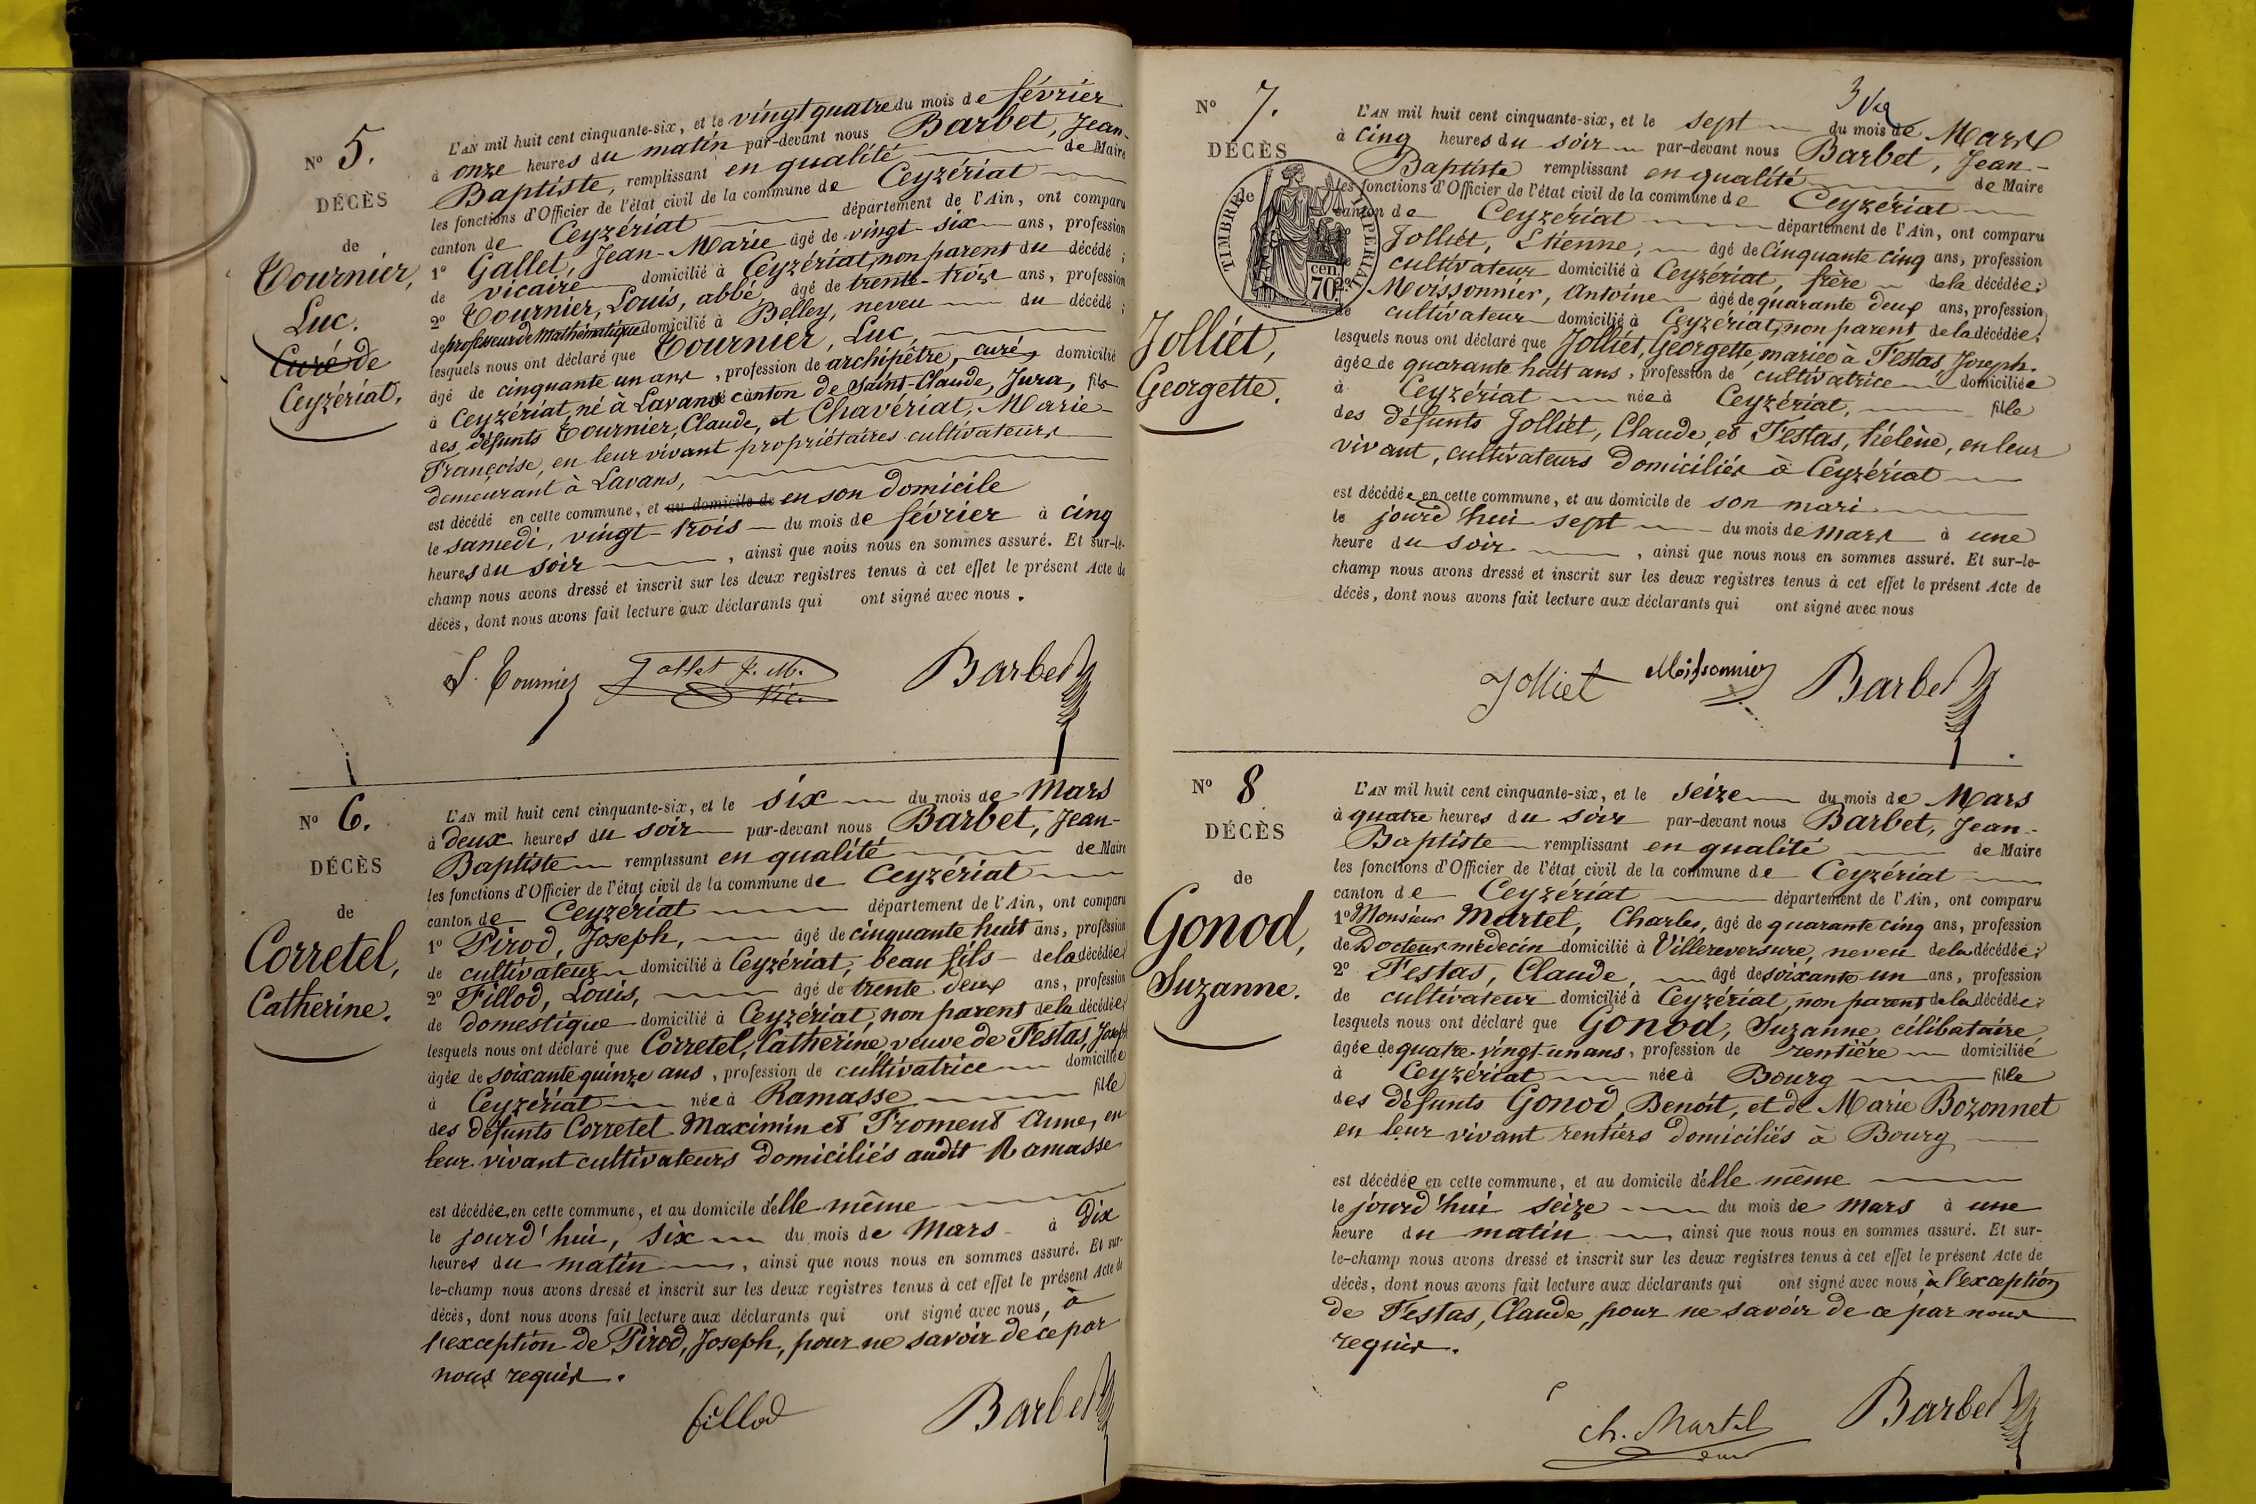 N° 5.
DÉCÈS
de
Tournier,
Luc.
Curé de
Ceyzériat.
L'AN mil huit cent cinquante-six, et le vingt quatre du mois de février
à onze heures du matin par-devant nous Barbet, Jean-
Baptiste, remplissant en qualité de Maire
les fonctions d'Officier de l'état civil de la commune de Ceyzériat
canton de Ceyzériat département de l'Ain, ont comparu
1° Gallet, Jean-Marie âgé de vingt-six ans, profession
de vicaire domicilié à Ceyzériat, non parent du décédé ;
2° Tournier, Louis, abbé, âgé de trente-trois ans, profession
de professeur de Mathématique domicilié à Belley, neveu du décédé ;
lesquels nous ont déclaré que Tournier, Luc,
âgé de cinquante un ans, profession de archiprêtre, curé, domicilié
à Ceyzériat, né à Lavans canton de Saint-Claude, Jura, fils
des défunts Tournier, Claude, et Chavériat, Marie-
Françoise, en leur vivant propriétaires cultivateurs
demeurant à Lavans,
est décédé en cette commune, et au domicile de en son domicile
le samedi, vingt-trois du mois de février à cinq
heures du soir, ainsi que nous nous en sommes assuré. Et sur-le-
champ nous avons dressé et inscrit sur les deux registres tenus à cet effet le présent Acte de
décès, dont nous avons fait lecture aux déclarants qui ont signé avec nous.
L. Tournier Gallet J. M. Vic. Barbet
N° 6.
DÉCÈS
de
Corretel,
Catherine.
L'AN mil huit cent cinquante-six, et le six du mois de Mars
à deux heures du soir par-devant nous Barbet, Jean-
Baptiste remplissant en qualité de Maire
les fonctions d'Officier de l'état civil de la commune de Ceyzériat
canton de Ceyzériat département de l'Ain, ont comparu
1° Pirod, Joseph, âgé de cinquante huit ans, profession
de cultivateur domicilié à Ceyzériat, beau fils de la décédée ;
2° Fillod, Louis, âgé de trente deux ans, profession
de domestique domicilié à Ceyzériat, non parent de la décédée ;
lesquels nous ont déclaré que Corretel, Catherine, veuve de Festas, Joseph
âgée de soixante quinze ans, profession de cultivatrice domiciliée
à Ceyzériat née à Ramasse fille
des défunts Corretel Maximin et Froment Anne, en
leur vivant cultivateurs domiciliés audit Ramasse
est décédée en cette commune, et au domicile d'elle même
le jourd'hui, six du mois de Mars à dix
heures du matin, ainsi que nous nous en sommes assuré. Et sur-
le-champ nous avons dressé et inscrit sur les deux registres tenus à cet effet le présent Acte de
décès, dont nous avons fait lecture aux déclarants qui ont signé avec nous, à
l'exception de Pirod, Joseph, pour ne savoir de ce par
nous requis.
fillod Barbet
3
N° 7.
DÉCÈS
de
TIMBRE IMPERIAL
70 cen.
Jolliet,
Georgette.
L'AN mil huit cent cinquante-six, et le sept du mois de Mars
à cinq heures du soir par-devant nous Barbet, Jean-
Baptiste remplissant en qualité de Maire
les fonctions d'Officier de l'état civil de la commune de Ceyzériat
canton de Ceyzériat département de l'Ain, ont comparu
Jolliet, Etienne, âgé de cinquante cinq ans, profession
de cultivateur domicilié à Ceyzériat, frère de la décédée ;
Moissonnier, Antoine âgé de quarante deux ans, profession
de cultivateur domicilié à Ceyzériat, non parent de la décédée ;
lesquels nous ont déclaré que Jolliet, Georgette, mariée à Festas, Joseph.
âgée de quarante huit ans, profession de cultivatrice domiciliée
à Ceyzériat née à Ceyzériat, fille
des défunts Jolliet, Claude, et Festas, hélène, en leur
vivant, cultivateurs domiciliés à Ceyzériat
est décédée en cette commune, et au domicile de son mari
le jourd'hui sept du mois de mars à une
heure du soir, ainsi que nous nous en sommes assuré. Et sur-le-
champ nous avons dressé et inscrit sur les deux registres tenus à cet effet le présent Acte de
décès, dont nous avons fait lecture aux déclarants qui ont signé avec nous
Jolliet Moissonnier Barbet
N° 8
DÉCÈS
de
Gonod,
Suzanne.
L'AN mil huit cent cinquante-six, et le seize du mois de Mars
à quatre heures du soir par-devant nous Barbet, Jean-
Baptiste remplissant en qualité de Maire
les fonctions d'Officier de l'état civil de la commune de Ceyzériat
canton de Ceyzériat département de l'Ain, ont comparu
1° Monsieur Martel, Charles, âgé de quarante cinq ans, profession
de Docteur médecin domicilié à Villereversure, neveu de la décédée ;
2° Festas, Claude, âgé de soixante un ans, profession
de cultivateur domicilié à Ceyzériat, non parent de la décédée ;
lesquels nous ont déclaré que Gonod, Suzanne, célibataire
âgée de quatre-vingt-un ans, profession de rentière domiciliée
à Ceyzériat née à Bourg fille
des défunts Gonod, Benoît, et de Marie Bozonnet
en leur vivant rentiers domiciliés à Bourg
est décédée en cette commune, et au domicile d'elle même
le jourd'hui seize du mois de mars à une
heure du matin, ainsi que nous nous en sommes assuré. Et sur-
le-champ nous avons dressé et inscrit sur les deux registres tenus à cet effet le présent Acte de
décès, dont nous avons fait lecture aux déclarants qui ont signé avec nous, à l'exception
de Festas, Claude, pour ne savoir de ce par nous
requis.
Ch. Martel Barbet